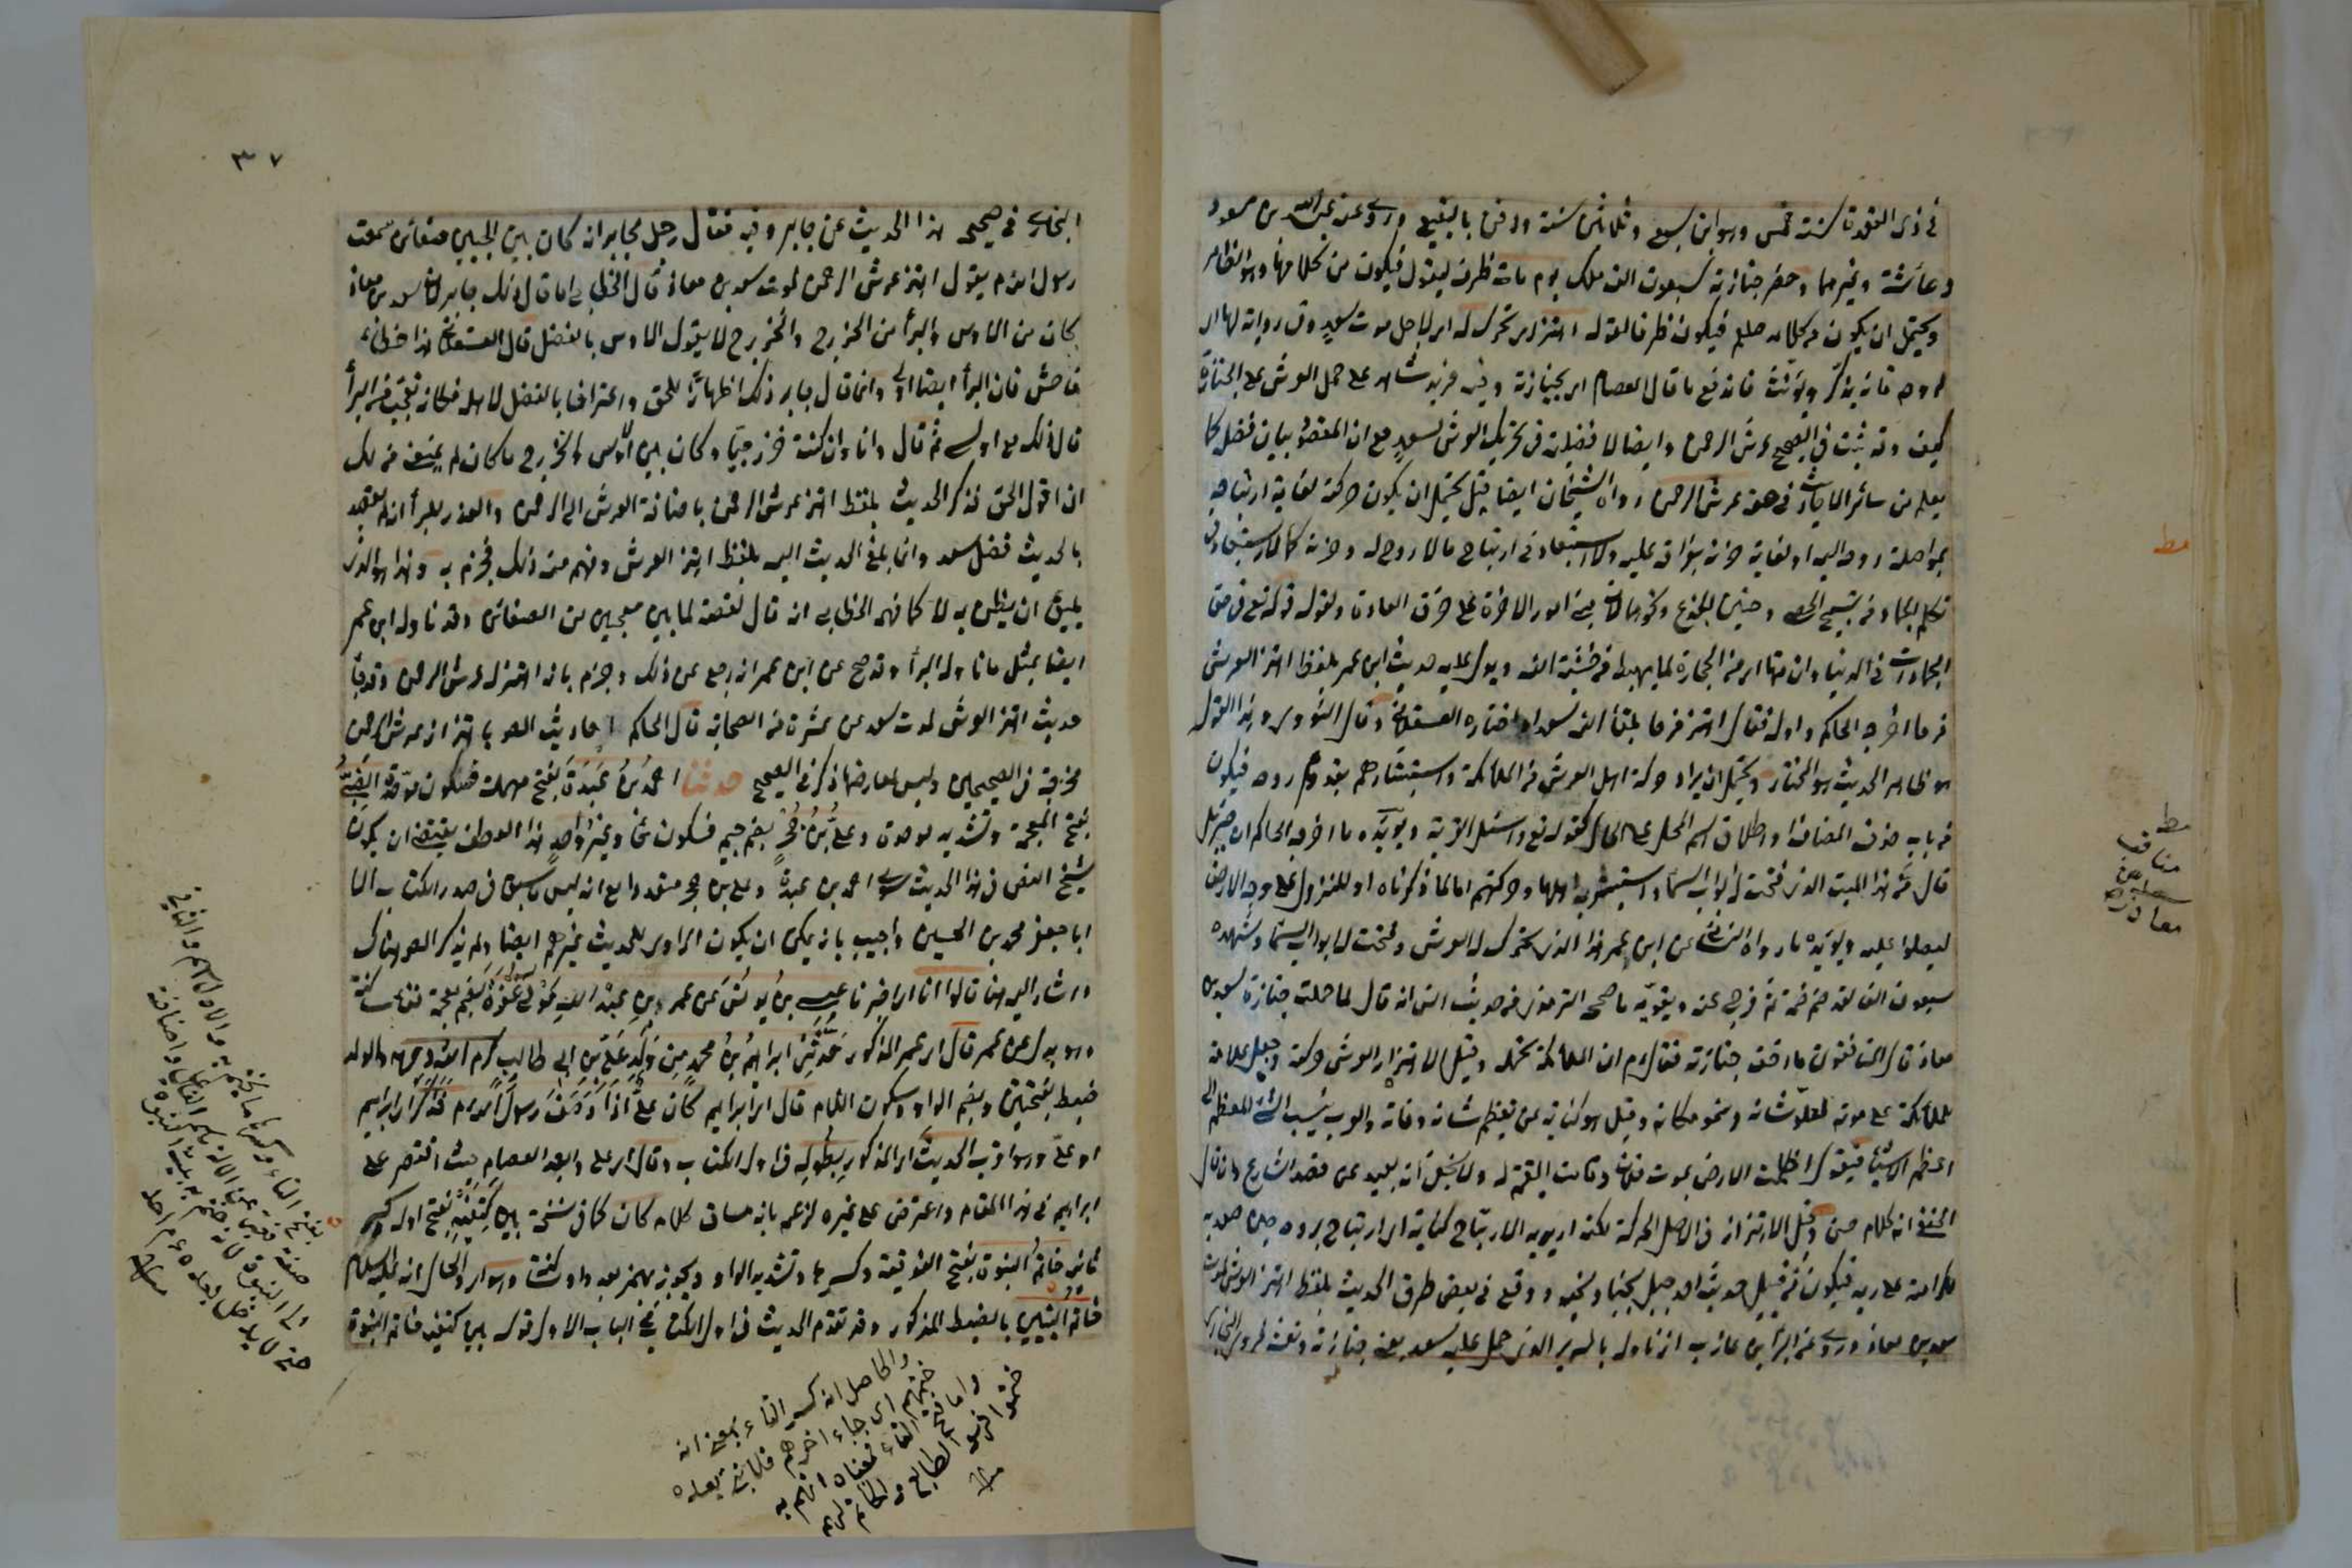 في ذى القعدة سنة خمس وهو ابن سبع وثلاثين سنة ودفن بالبقيع وروى عنه عبد الله بن مسعود
وعائشة وغيرهما وحضر جنازته سبعون الف ملك يوم مات ظرف ليقول فيكون من كلامها وهو الظاهر
ويحتمل ان يكون من كلامه صلعم فيكون ظرفا لقوله اهتز اى تحرك له اى لاجل موت سعد وفى رواية لها اى
لروحه فانه يذكر ويؤنث فاندفع ما قال العصام اى بجنازته وفيه مزيد شاهد على حمل العرش على الجنازة
كيف وقد ثبت فى الصحيح عرش الرحمن وايضا لا فضيلة فى تحريك العرش لسعد مع ان المقصود بيان فضل كما
يعلم من سائر الاحاديث فى حقه عرش الرحمن رواه الشيخان ايضا قيل يحتمل ان يكون حركته لغاية ارتياحه
بمواصلة روحه اليه او لغاية حزنه بفراقه عليه ولا استبعاد فى ارتياح مالا روح له وحزنه كما لا استبعاد فى
تكلم الجماد من تسبيح الحصى وحنين الجذع ونحوهما لان امور الاخرة على خرق العادة ولقوله تعالى فى حق
الجمادات فى الدنيا وان منها اى من الحجارة لما يهبط من خشية الله ويدل عليه حديث ابن عمر بلفظ اهتز العرش
فرحا اخرجه الحاكم واوله فقال اهتز فرحا بلقاء الله سعدا واختاره العسقلانى وقال النووى وهذا القول
هو ظاهر الحديث هو المختار ويحتمل ان يراد حركة اهل العرش من الملائكة واستبشارهم بقدوم روحه فيكون
من باب حذف المضاف او اطلاق اسم المحل على الحال كقوله تع واسئل القرية ويؤيده ما اخرجه الحاكم ان جبرئيل
قال من هذا الميت الذى فتحت له ابواب السماء واستبشر به اهلها وحركتهم اما لما ذكرناه او للنزول على وجه الارض
ليصلوا عليه ويؤيده ما رواه النسائى عن ابن عمر هذا الذى تحرك له العرش وفتحت له ابواب السماء وشهده
سبعون الفا لقد ضم ضمة ثم فرج عنه ويقويه ما صححه الترمذى من حديث انس انه قال لما حملت جنازة سعد بن
معاذ قال المنافقون ما اخف جنازته فقال عم ان الملائكة تحمله وقيل الاهتزاز للعرش حركة وجعل علامة
للملائكة على موته لعلو شانه وسمو مكانه وقيل هو كناية عن تعظيم شانه وفاته والعرب ينسب الشئ المعظم الى
اعظم الاشياء فيقول اظلمت الارض بموت فلان وقامت القيمة له ولا يخفى انه بعيد عن مقصد الشارع وان قال
الحنفى انه كلام حسن وقيل الاهتزاز فى الاصل الحركة لكنه اريد به الارتياح كناية اى ارتياح بروحه حين صعد به
لكرامته على ربه فيكون من قبيل حديث احد جبل يحبنا ونحبه ووقع فى بعض طرق الحديث بلفظ اهتز العرش لموت
سعد بن معاذ وروى عن البراء بن عازب انه تاوله بالسرير الذى حمل عليه سعد يعنى جنازته ونعشه لحديث البخارى
مط
مط
مناقب
سعد بن
معاذ رض
٣٧
البخارى فى صحيحه هذا الحديث عن جابر وفيه فقال رجل لجابر انه كان بين الحيين ضغائن سمعت
رسول الله عم يقول اهتز عرش الرحمن لموت سعد بن معاذ قال الخطابى انما قال ذلك جابر لان سعد بن معاذ
كان من الاوس والبراء من الخزرج والخزرج لا يقول الاوس بالفضل قال العسقلانى هذا خطاء
فاحش فان البراء ايضا اوسى وانما قال جابر ذلك اظهارا للحق واعترافا بالفضل لاهله فكانه تعجب من البراء
قال ذلك مع اوسى ثم قال وانا وان كنت خزرجيا وكان بين الاوس والخزرج ما كان لم يمنعنى من ذلك
ان اقول الحق فذكر الحديث بلفظ اهتز عرش الرحمن باضافة العرش الى الرحمن والعذر للبراء انه لم يقصد
بالحديث فضل سعد وانما بلغ الحديث اليه بلفظ اهتز العرش وفهم منه ذلك فجزم به وهذا هو الذى
يليق ان يظن به لا كما فهم الخطابى انه قال لعصبة لما بين الحيين من الضغائن وقد تاوله ابن عمر
ايضا بمثل ما تاوله البراء وقد صح عن ابن عمر انه رجع عن ذلك وجزم بانه اهتز له عرش الرحمن وقد جاء
حديث اهتز العرش لموت سعد عن عشرة من الصحابة قال الحاكم احاديث المصرحة باهتزاز عرش الرحمن
مخرجة فى الصحيحين وليس لمعارضها ذكر فى الصحيح حدثنا احمد بن عبدة بفتح مهملة فسكون موحدة الضبى
بفتح المعجمة وتشديد موحدة وعلى بن حجر بضم جيم فسكون حاء وغير واحد هذا العطف يقتضى ان يكون
شيخ المصنف فى هذا الحديث سوى احمد بن عبدة وعلى بن حجر متعددا مع انه ليس ما سبق فى صدر الكتاب الا
ابا جعفر محمد بن الحسين واجيب بانه يمكن ان يكون الراوى للحديث غيرهم ايضا ولم يذكر المص هناك
واشار اليه هنا قالوا انا اى اخبرنا عيسى بن يونس عن عمر بن عبد الله مولى غفرة بضم معجمة ففاء ساكنة
وهو بدل عن عمر قال اى عمر المذكور حدثنى ابراهيم بن محمد من ولد على بن ابى طالب كرم الله وجهه والولد
ضبط بفتحتين وبضم الواو وسكون اللام قال اى ابراهيم كان على اذا وصف رسول الله عم فذكر اى ابراهيم
او على وهو اقرب الحديث اى المذكور بطوله فى اول الكتاب وقال اى على وابعد العصام حيث اقتصر على
ابراهيم فى هذا المقام واعترض على غيره لزعمه بانه مساق كلامه كان كما فى نسخة بين كتفيه بفتح اوله وكسر
ثانيه خاتم النبوة بفتح الفوقية وكسرها وتشديد الواو ويجوز بهمز بعد واو ساكنة وهو اى والحال انه عليه السلام
خاتم النبيين بالضبط المذكور وقد تقدم الحديث فى اول الكتاب فى الباب الاول قوله بين كتفيه خاتم النبوة
والحاصل ان كسر التاء بمعنى انه
ختمهم اى جاء اخرهم فلا نبى بعده
واما فتح التاء فمعناه انهم به
ختموا فهو الطابع والخاتم لهم